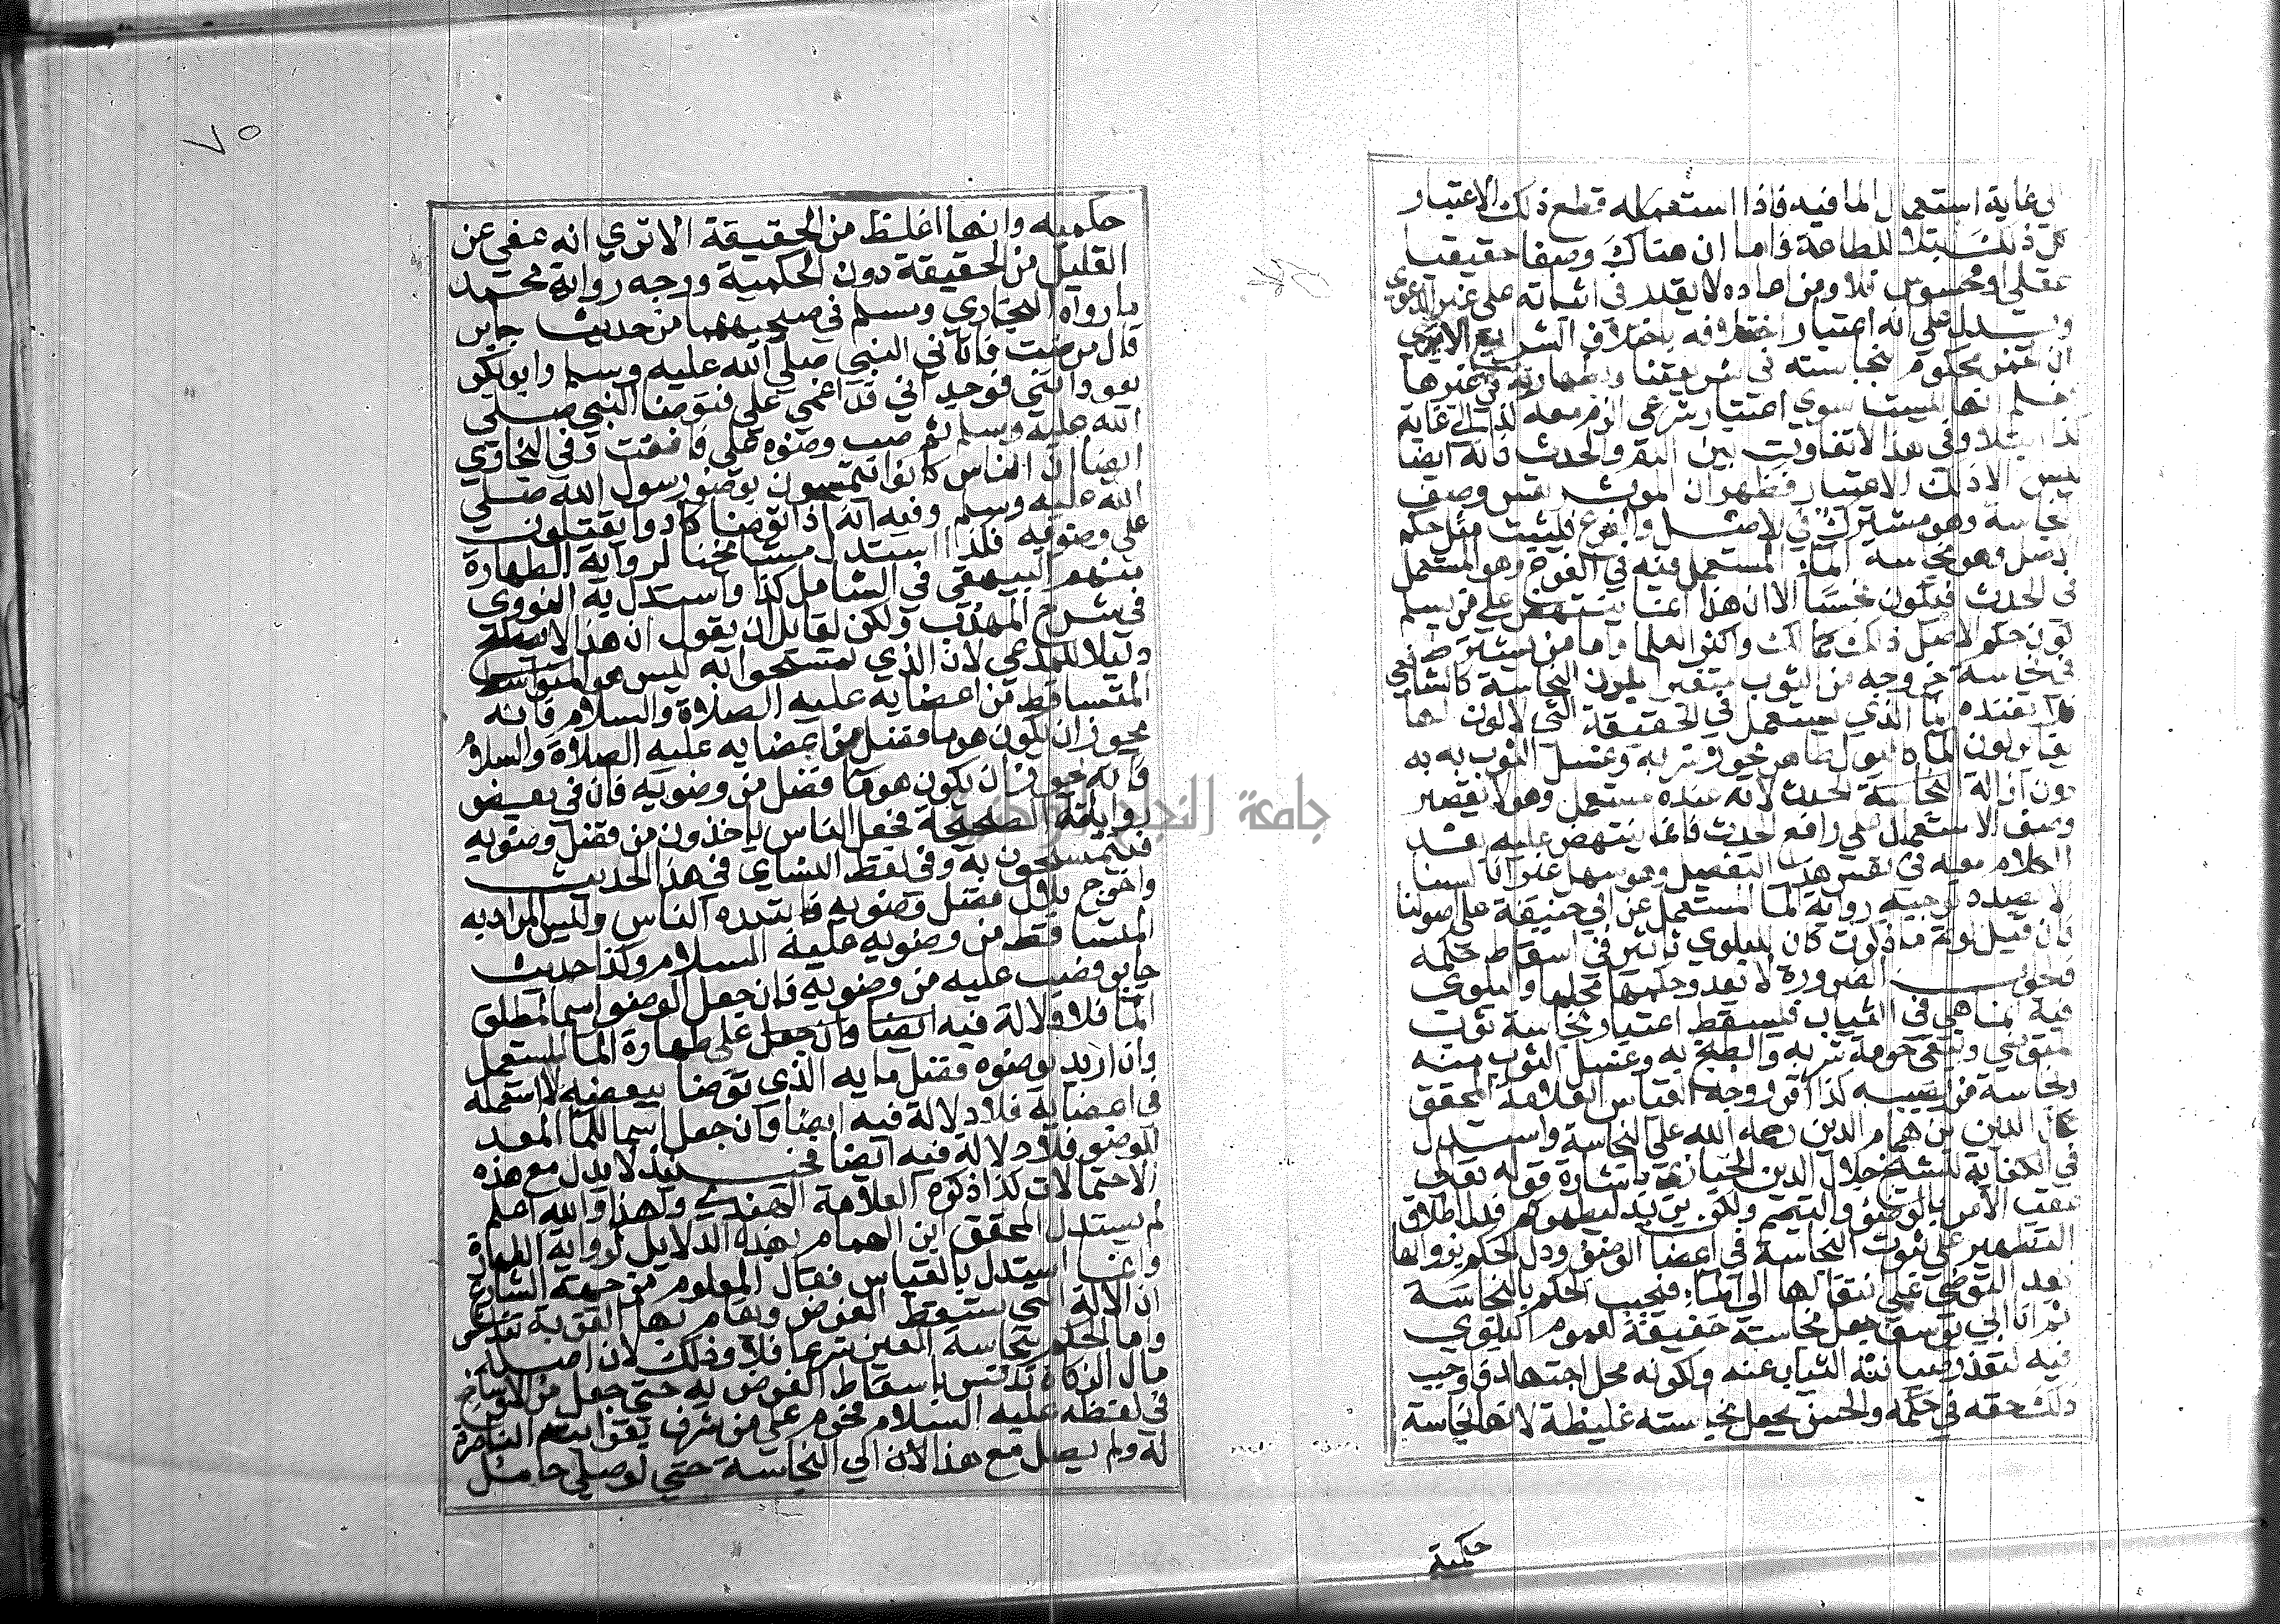 الي غاية استعمال الما فيه فاذا استعمله قطع ذلك الاعتبار
كل ذلك ابتلا للطاعة فاما ان هناك وصفا حقيقيا
عقلي او محسوس فلا ومن ادعاه لا يقدر في اثباته على غير الدعوي
ويدل علي انه اعتبار اختلافه باختلاف الشرايع الا تري
ان الخمر محكوم بنجاسته في شريعتنا وبطهارته في غيرها
فعلم انها ليست سوي اعتبار شرعي الزم معه كذا الي غاية
كذا ابتلا وفي هذا لا تفاوت بين الدم والحدث فانه ايضا
ليس الا ذلك الاعتبار فظهر ان الموثر نفس وصف
النجاسة وهو مشترك في الاصل والفرع فيثبت مثل حكم
الاصل وهو نجاسة الماء المستعمل فيه في الفرع وهو المستعمل
في الحدث فيكون نجسا الا ان هذا انما ينتهض علي من يسلم
كون حكم الاصل ذلك كمالك واكثر العلما واما من يشترط
في نجاسته خروجه من الثوب متغيرا بلون النجاسة كالشافعي
فلا فعنده الما الذي يستعمل في الحقيقة التي لا لون لها
يغاير لون الماء كالبول طاهر يجوز شربه وغسل الثوب به
دون ازالة الحدث لانه عنده مستعمل وهو لا يقصر
وصف الاستعمال علي رافع الحدث فانما ينتهض عليه بعد
الكلام معه في نفس هذا التفصيل وهو سهل غير انا لسنا
الا بصدد توجيه رواية الما المستعمل عن ابي حنيفة على اصولنا
فان قيل لو تم ما ذكرت كان للبلوي تاثير في اسقاط حكمه
فالجواب الضرورة لا يعدو حكمها محلها والبلوي
فيه انما هي في الثياب فيسقط اعتبار نجاسة ثوب
المتوضي وتبقى حرمة شربه والطبخ به وغسل الثوب منه
ونجاسة من يصيبه كذا قرر وجه القياس العلامة المحقق
كمال الدين بن همام الدين رحمه الله علي النجاسة واستدل
في الكفاية للشيخ جلال الدين الخبازي باشارة قوله تعالى
عقب الامر بالوضوء والتيمم ولكن يريد ليطهركم فدل اطلاق
التطهير على ثبوت النجاسة في اعضا الوضوء ودل الحكم بزوالها
بعد التوضي على انتقالها الى الماء فيجب الحكم بالنجاسة
ثم ان ابي يوسف جعل نجاسته خفيفة لعموم البلوي
فيه لتعذر صيانة الثياب عنه ولكونه محل اجتهاد فاوجب
ذلك خفه في حكمه والحسن يجعل نجاسته غليظة لانها نجاسة
حكمية
٧٥
حكميه وانها اغلظ من الحقيقة الا تري انه عفى عن
القليل من الحقيقة دون الحكمية ووجه رواية محمد
ما رواه البخاري ومسلم في صحيحيهما من حديث جابر
قال مرضت فاتاني النبي صلى الله عليه وسلم وابو بكر
يعوداني فوجداني قد اغمي علي فتوضا النبي صلى
الله عليه وسلم ثم صب وضوه على فافقت وفي البخاري
ايضا ان الناس كانوا يتمسحون بوضو رسول الله صلى
الله عليه وسلم وفيه انه اذا توضا كادوا يقتتلون
على وضوئه فلذا استدل مشايخنا لرواية الطهارة
منهم البيهقي في الشامل كذا واستدل به النووي
في شرح المهذب ولكن لقايل ان يقول ان هذا لا يصلح
دليلا للمدعي لان الذي تمسحوا به ليس هو
المتساقط من اعضايه عليه الصلاة والسلام فانه
يجوز ان يكون هو ما فضل من اعضايه عليه الصلاة والسلام
فانه يجوز ان يكون هو ما فضل من وضويه فان في بعض
رواياته الصحيحة فجعل الناس ياخذون من فضل وضويه
فيتمسحون به وفي لفظ النساي في هذا الحديث
واخرج بلال فضل وضويه فابتدره الناس وليس المراد به
المتساقط من وضويه عليه السلام وكذا حديث
جابر وصب عليه من وضويه فان جعل الوضو اسما لمطلق
الما فلا دلالة فيه ايضا وان جعل على طهارة الما المستعمل
وان اريد بوضوه فضل مايه الذي توضا ببعضه لا استعمله
في اعضايه فلا دلالة فيه ايضا وان جعل اسما للما المعد
للوضو فلا دلالة فيه ايضا فحينئذ لا يدل مع هذه
الاحتمالات كذا ذكره العلامة الهندي ولهذا والله اعلم
لم يستدل المحقق ابن الهمام بهذه الدلايل لرواية الطهارة
وانما استدل بالقياس فقال المعلوم من جهة الشارع
ان الالة التي تسقط الفرض ويقام بها القربة تتدنس
واما الحكم بنجاسة العين شرعا فلا وذلك لان اصله
مال الزكاة تدنس باسقاط الفرض به حتى جعل من الاوساخ
في لفظه عليه السلام فحرم على من شرف بقرابته الناصرة
له ولم يصل مع هذا الان الي النجاسة حتي لو صلي حامل
جامعة النجاح الوطنية